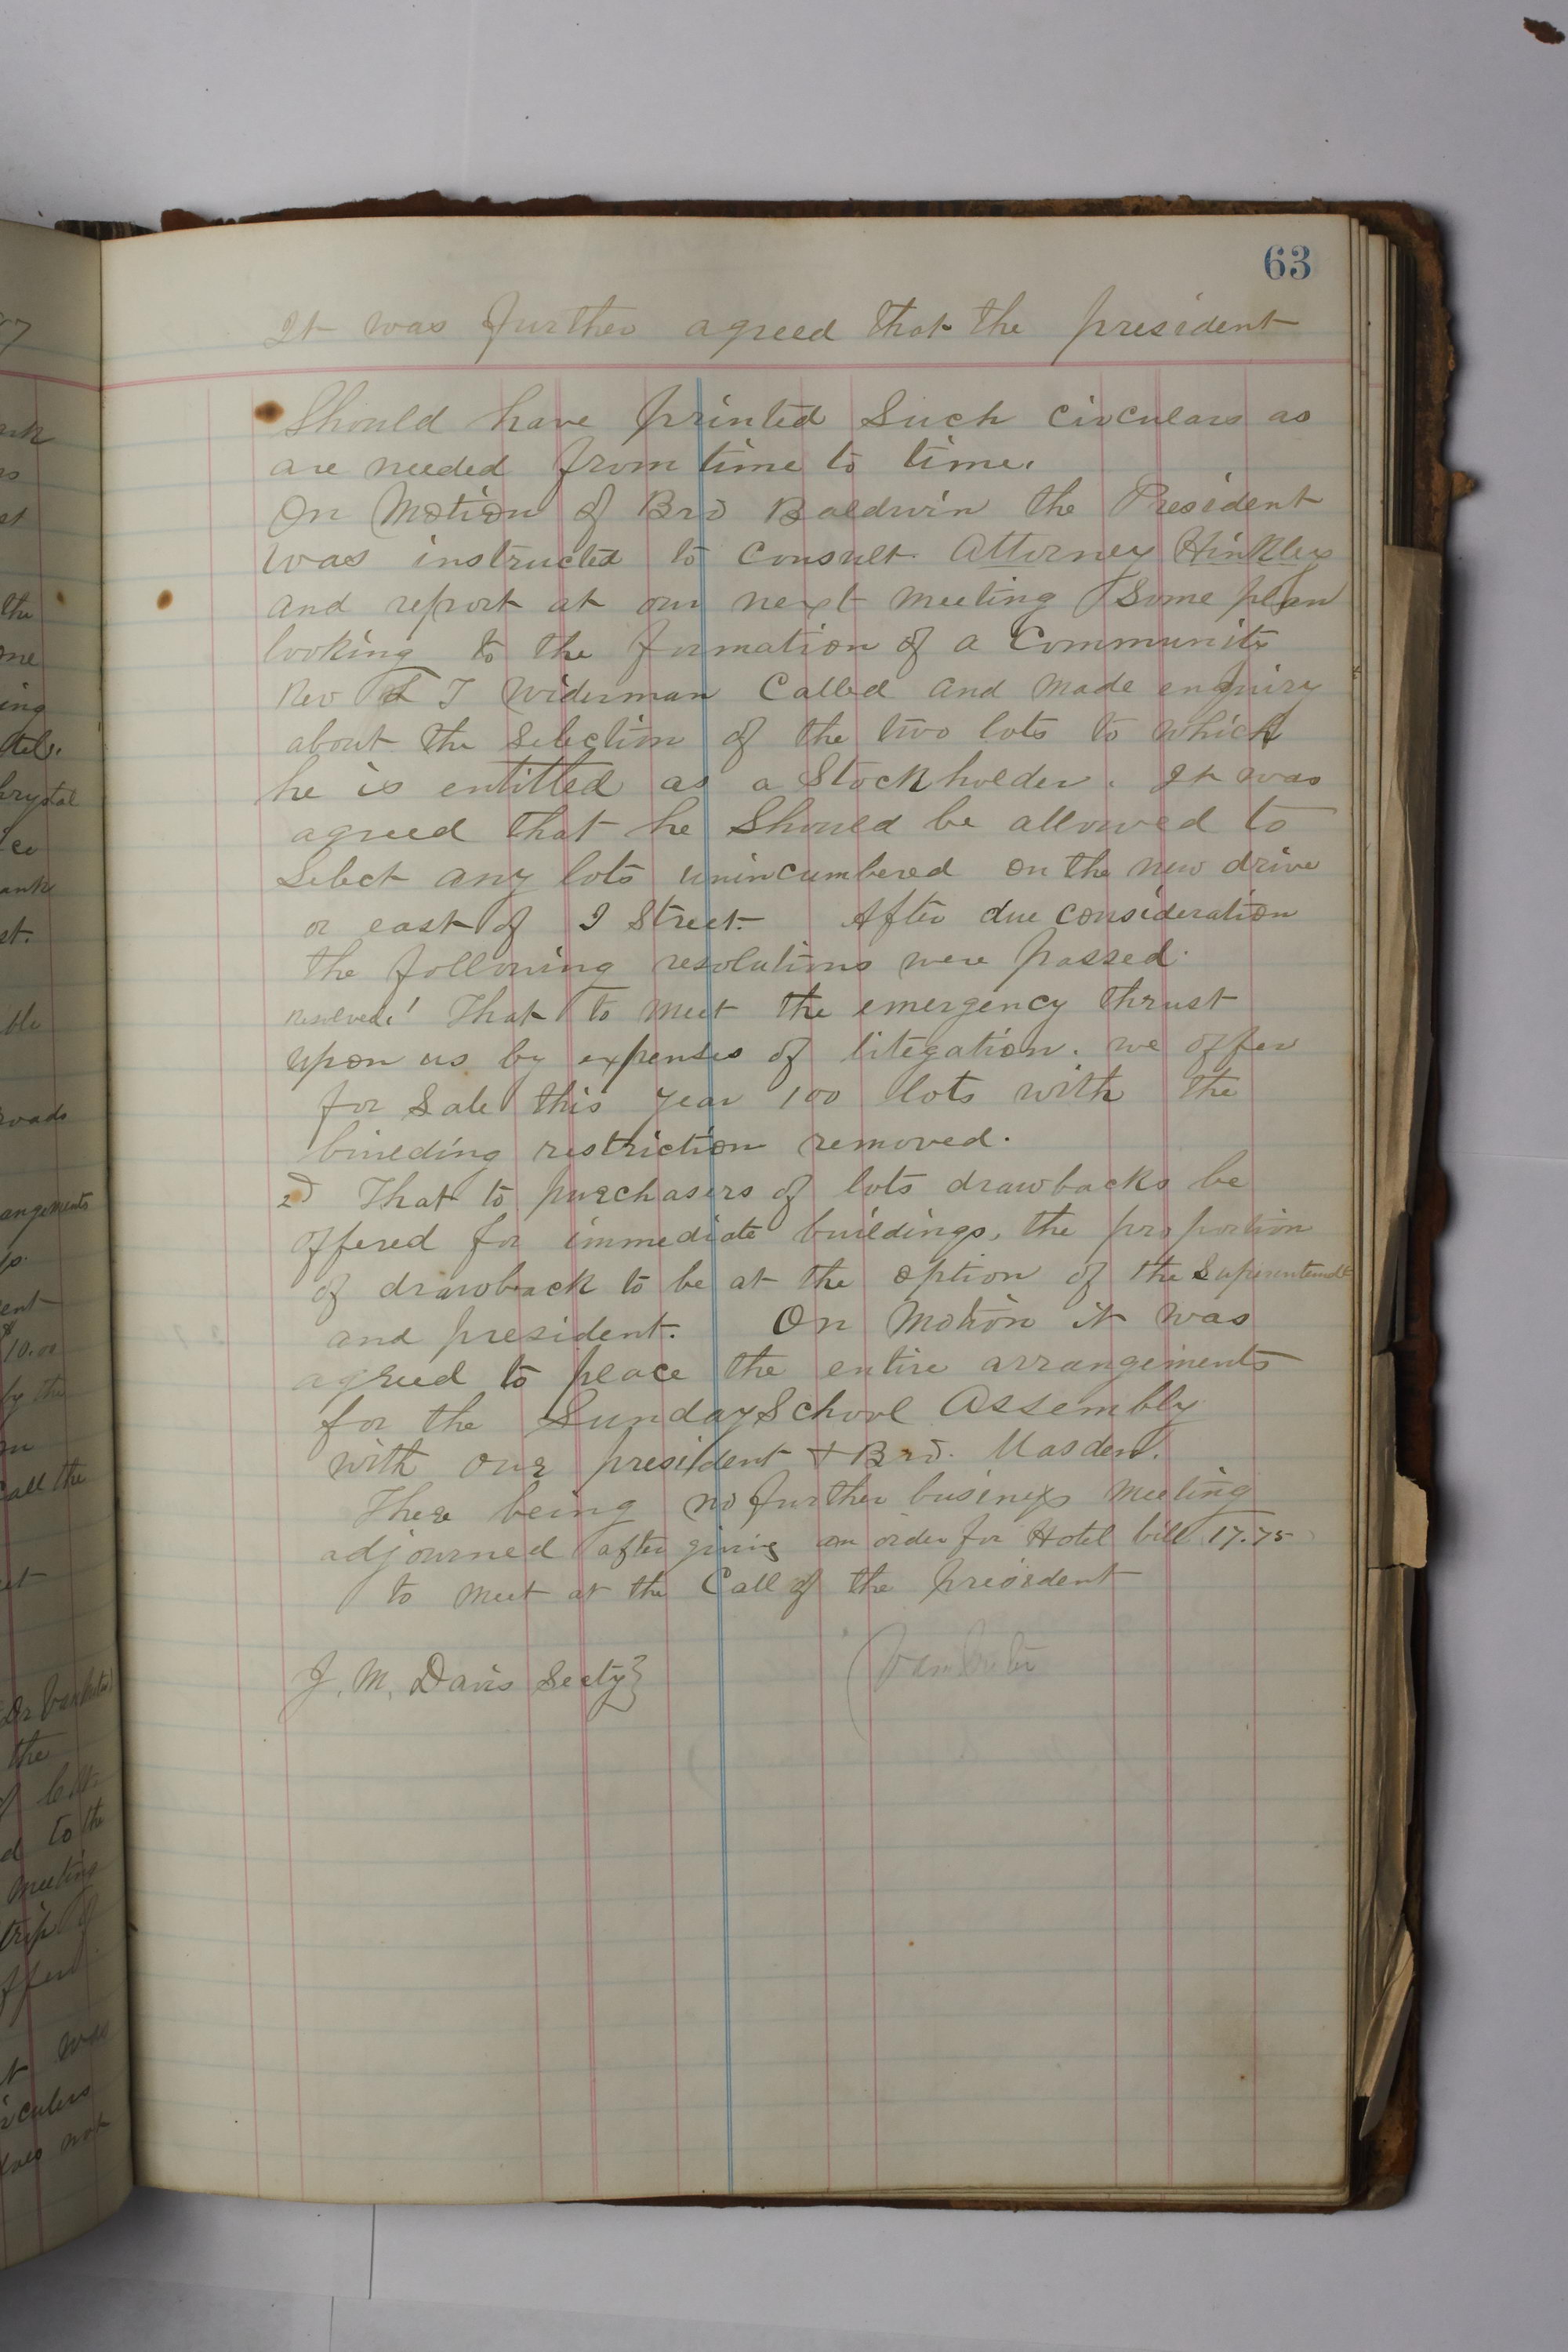 63
It was further agreed that the president
Should have printed Such circulars as
are needed from time to time.
On Motion of Bro Baldwin the President
was instructed to consult Attorney Hinkley
and report at our next meeting Some plan
looking to the formation of a Community
Rev T Widerman Called and made enquiry
about the Selection of the two lots to which
he is entitled as a Stockholder. It was
agreed that he Should be allowed to
Select any lots unincumbered on the new drive
or east of I Street. After due consideration
the following resolutions were passed.
Resolved! That to meet the emergency thrust
upon us by expenses of litegation. we offer
for Sale this year 100 lots with the
building restriction removed.
2d That to purchasers of lots drawbacks be
offered for immediate buildings, the proportion
of drawback to be at the option of the Superintendt
and president. On Motion it was
agreed to place the entire arrangements
for the Sunday School Assembly
with our president + Bro. Masden.
There being no further business meeting
adjourned after giving an order for Hotel bill 17.75
to meet at the Call of the president
J. M. Davis Secty